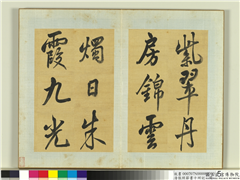 紫翠丹
房錦雲
燭日朱
霞九光